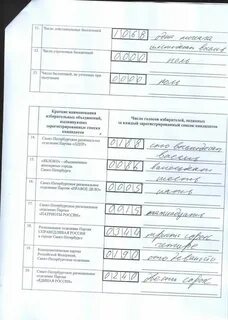 11. Число действительных бюллетеней 1068 одна тысяча
шестьдесят восемь
12. Число утраченных бюллетеней 0000 ноль
13. Число бюллетеней, не учтенных при получении 0000 ноль
Краткие наименования избирательных объединений, выдвинувших зарегистрированные списки кандидатов
Число голосов избирателей, поданных за каждый зарегистрированный список кандидатов
14. отделение Партии «ЛДПР» 0188 сто восемьдесят
восемь
15. «ЯБЛОКО» - объединение демократ партии Санкт-Петербурга
16. Санкт-Петербургское региональное отделение Партии «ПРАВОЕ ДЕЛО» 0005 пять
17. Санкт-Петербургское региональное отделение Партии «ПАТРИОТЫ РОССИИ» 0015 пятнадцать
18. Региональное отделение Партии СПРАВЕДЛИВАЯ РОССИЯ в городе Санкт-Петербурге 0344 триста сорок
четыре
19. Коммунистическая партия Российской Федерации, Санкт-Петербургское отделение 0190 сто девяносто
20. Санкт-Петербургское региональное отделение Партии «ЕДИНАЯ РОССИЯ» 0240 двести сорок